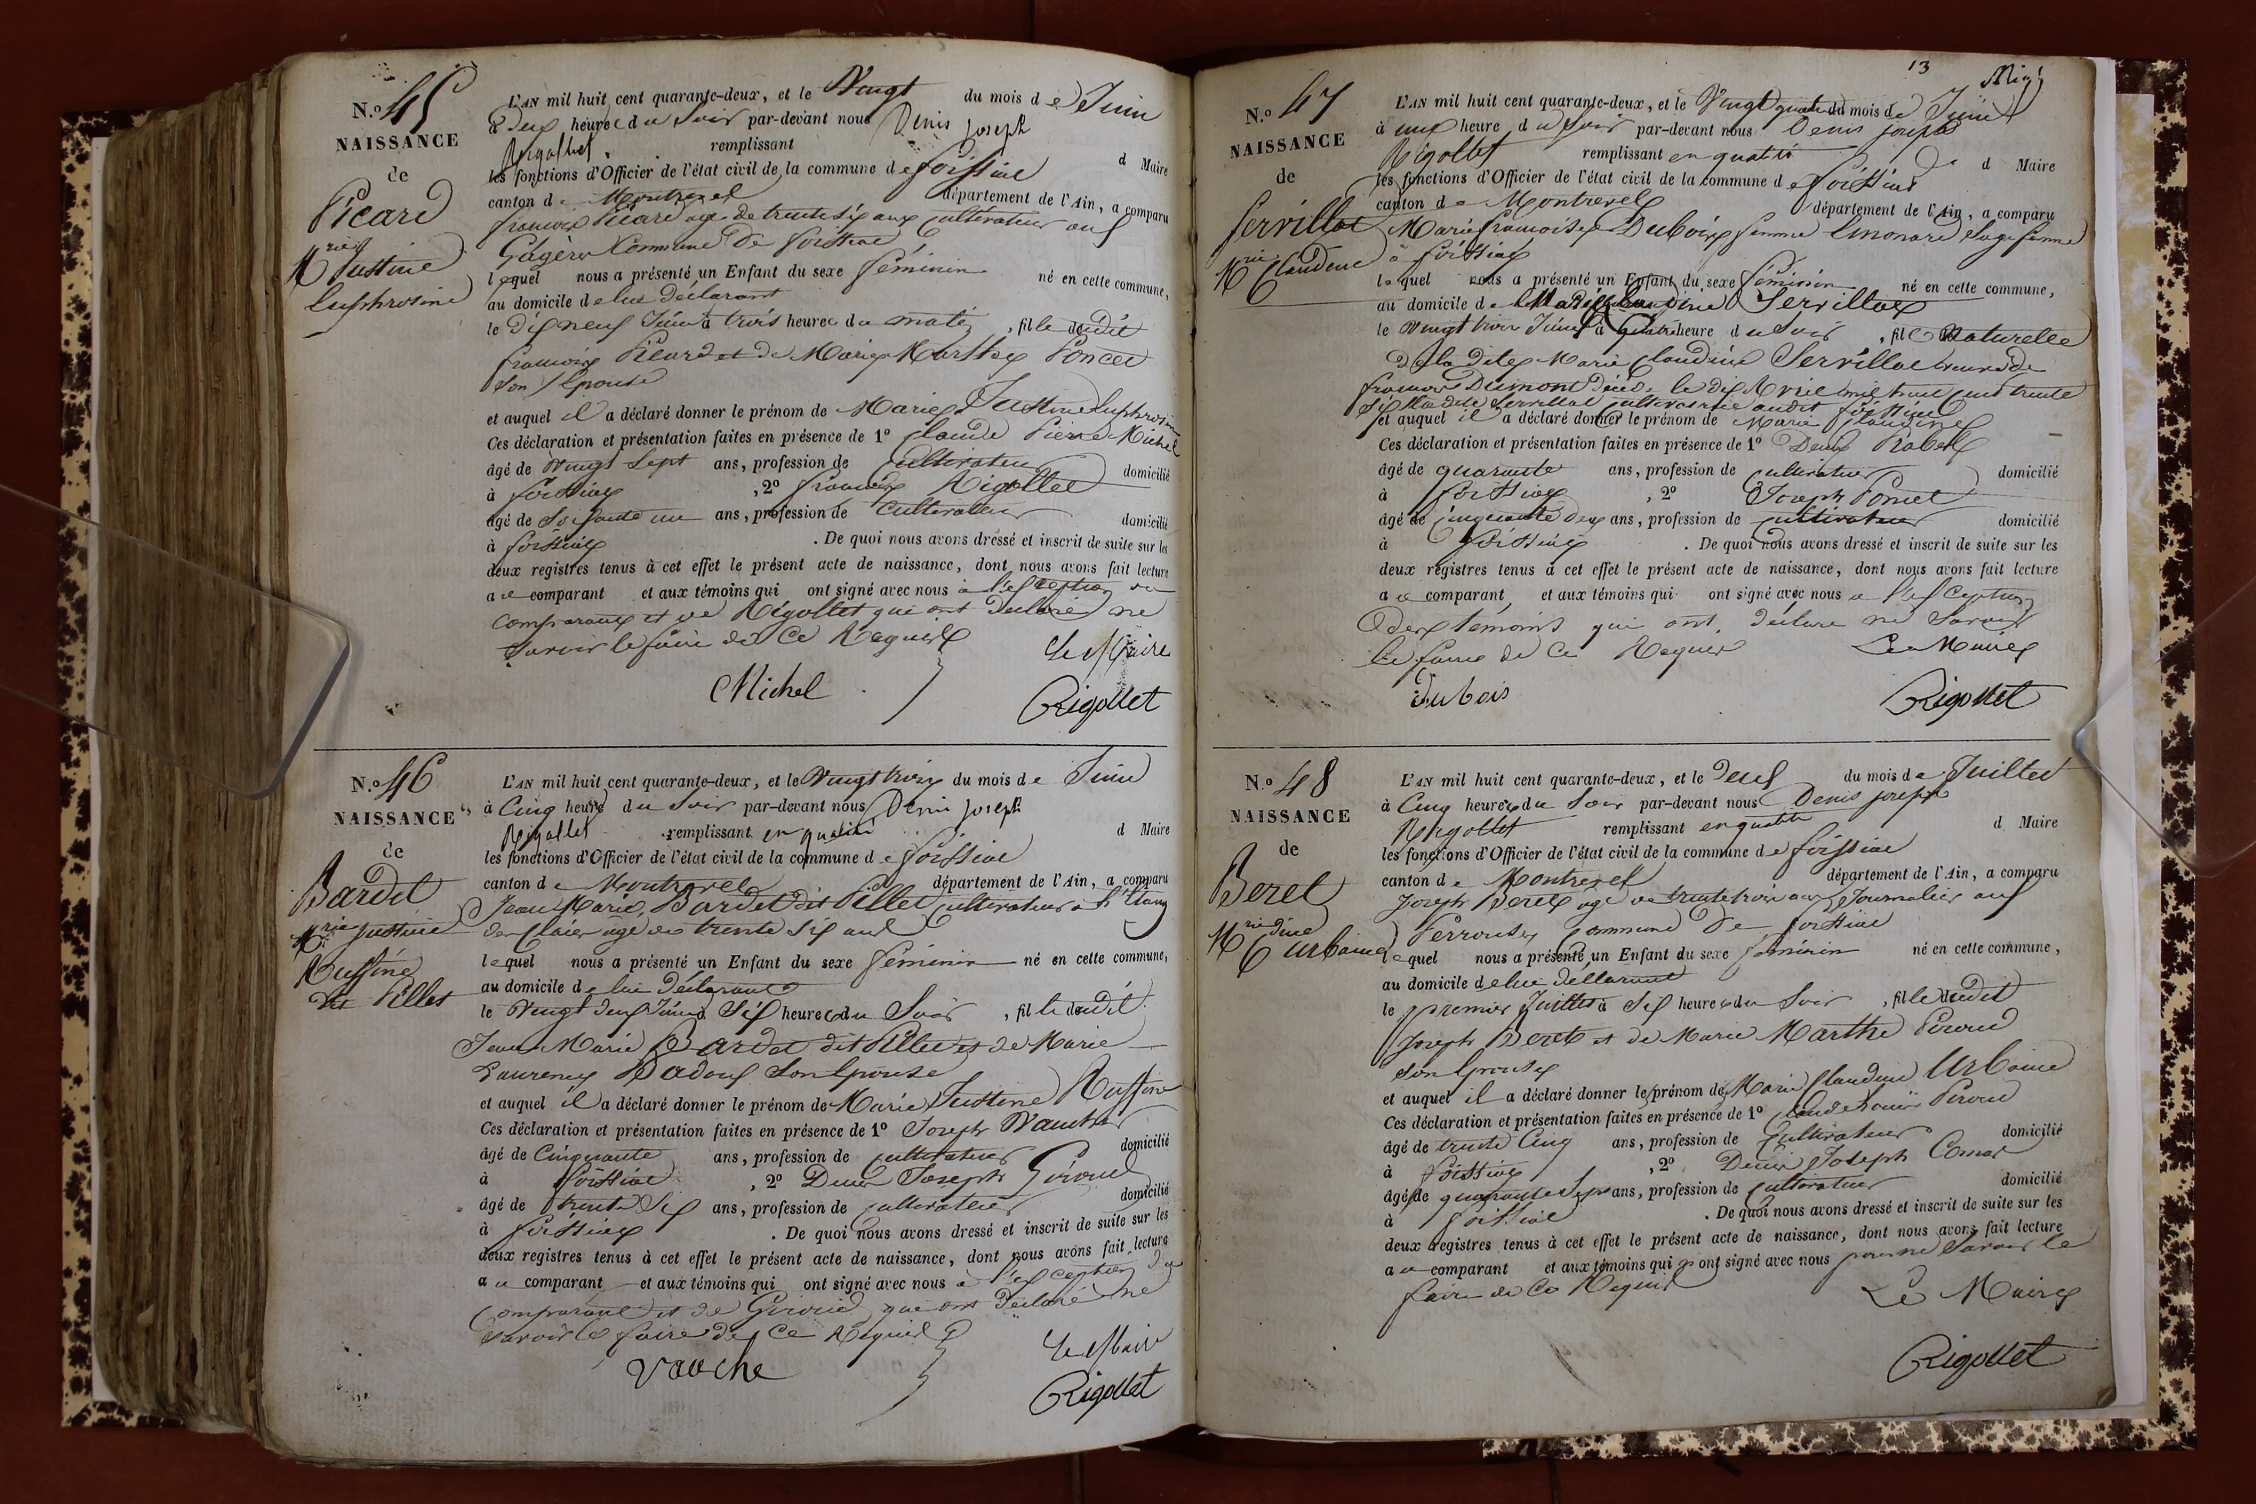 N.o 45
NAISSANCE
de
Picard
Mrie Justine
Euphrosine
L'AN mil huit cent quarante-deux, et le Vingt du mois de Juin
à Deux heure du Soir par-devant nous Denis Joseph
Rigollet remplissant d Maire
les fonctions d'Officier de l'état civil de la commune de foissiat
canton de Montrevel département de l'Ain, a comparu
francois Picard age de trente six ans cultivateur aux
Commune De foissiat
lequel nous a présenté un Enfant du sexe féminin né en cette commune,
au domicile de lui Déclarant
le Dix neuf Juin à trois heure du matin, fille dudit
francois Picard et de Marie Marthe Poncet
son Epouse
et auquel il a déclaré donner le prénom de Marie Justine Euphrosine
Ces déclaration et présentation faites en présence de 1o Claude Pierre Michel
âgé de Vingt Sept ans, profession de Cultivateur domicilié
à foissiat, 2o francois Rigollet
âgé de Soixante un ans, profession de cultivateur domicilié
à foissiat. De quoi nous avons dressé et inscrit de suite sur les
deux registres tenus à cet effet le présent acte de naissance, dont nous avons fait lecture
a ce comparant et aux témoins qui ont signé avec nous à l'exception du
comparant et de Rigollet qui ont déclaré ne
savoir le faire de ce Requis
Le Maire
Michel
Rigollet
N.o 46
NAISSANCE
de
Bardet
Mrie Justine
Ruffine
dit Pillet
L'AN mil huit cent quarante-deux, et le Vingt trois du mois de Juin
à Cinq heure du Soir par-devant nous Denis Joseph
Rigollet remplissant en qualité d Maire
les fonctions d'Officier de l'état civil de la commune de foissiat
canton de Montrevel département de l'Ain, a comparu
Jean Marie Bardet dit Pillet cultivateur à l'Etang
age de trente six ans
lequel nous a présenté un Enfant du sexe féminin né en cette commune,
au domicile de lui déclarant
le Vingt deux Juin à Six heure du Soir, fille dudit
Jean Marie Bardet dit Pillet et de Marie
Laurence Badoux Son Epouse
et auquel il a déclaré donner le prénom de Marie Justine Ruffine
Ces déclaration et présentation faites en présence de 1o Joseph Vauche
âgé de Cinquante ans, profession de cultivateur domicilié
à foissiat, 2o Denis Joseph Giroud
âgé de trente Six ans, profession de cultivateur domicilié
à foissiat. De quoi nous avons dressé et inscrit de suite sur les
deux registres tenus à cet effet le présent acte de naissance, dont nous avons fait lecture
a ce comparant et aux témoins qui ont signé avec nous à l'exception du
Comparant et de Giroud qui ont déclaré ne
savoir le faire de ce Requis
Le Maire
vauche
Rigollet
13
N.o 47
NAISSANCE
de
Servillat
Mrie Claudine
L'AN mil huit cent quarante-deux, et le Vingt quatre du mois de Juin
à une heure du Soir par-devant nous Denis Joseph
Rigollet remplissant en qualité de d Maire
les fonctions d'Officier de l'état civil de la commune de foissiat
canton de Montrevel département de l'Ain, a comparu
Marie francoise Dubois femme sage femme
à foissiat
laquel nous a présenté un Enfant du sexe féminin né en cette commune,
au domicile de Marie Claudine Servillat
le Vingt trois Juin à quatre heure du Soir, fille Naturelle
de la dite Marie Claudine Servillat veuve de
francois Dumont Décédé le dix Avril mil huit cent trente
six la dite Servillat cultivatrice audit foissiat
et auquel il a déclaré donner le prénom de Marie Claudine
Ces déclaration et présentation faites en présence de 1o Denis
âgé de quarante ans, profession de cultivateur domicilié
à foissiat, 2o Joseph Poncet
âgé de cinquante deux ans, profession de cultivateur domicilié
à foissiat. De quoi nous avons dressé et inscrit de suite sur les
deux registres tenus à cet effet le présent acte de naissance, dont nous avons fait lecture
a ce comparant et aux témoins qui ont signé avec nous à l'exception
des témoins qui ont déclaré ne savoir
le faire de ce Requis
Le Maire
Dubois
Rigollet
N.o 48
NAISSANCE
de
Beret
Mrie Cdine
Urbaine
L'AN mil huit cent quarante-deux, et le Deux du mois de Juillet
à Cinq heure du Soir par-devant nous Denis Joseph
Rigollet remplissant en qualité d Maire
les fonctions d'Officier de l'état civil de la commune de foissiat
canton de Montrevel département de l'Ain, a comparu
Joseph Beret age de trente trois ans Journalier aux
Perrouses Commune De foissiat
lequel nous a présenté un Enfant du sexe féminin né en cette commune,
au domicile de lui déclarant
le premier Juillet à Six heure du Soir, fille dudit
Joseph Beret et de Marie Marthe Peroud
son Epouse
et auquel il a déclaré donner le prénom de Marie Claudine Urbaine
Ces déclaration et présentation faites en présence de 1o Claude Louis Peroud
âgé de trente Cinq ans, profession de Cultivateur domicilié
à foissiat, 2o Denis Joseph Comas
âgé de quarante Sept ans, profession de cultivateur domicilié
à foissiat. De quoi nous avons dressé et inscrit de suite sur les
deux registres tenus à cet effet le présent acte de naissance, dont nous avons fait lecture
a ce comparant et aux témoins qui ont signé avec nous pour ne savoir le
faire de ce Requis
Le Maire
Rigollet